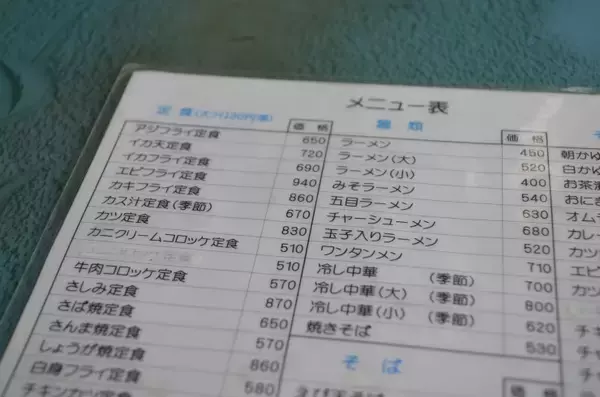 メニュー表
定食
価格
アジフライ定食 650
イカ天定食 720
イカフライ定食 690
エビフライ定食 940
カキフライ定食 860
カス汁定食(季節) 670
カツ定食 830
カニクリームコロッケ定食 510
510
牛肉コロッケ定食 570
さしみ定食 870
さば焼定食 650
さんま焼定食 570
しょうが焼定食 860
白身フライ定食 580
チキンカツ定食
麺類
価格
ラーメン 450
ラーメン(大) 520
ラーメン(小) 400
みそラーメン 540
五目ラーメン 630
チャーシューメン 680
玉子入りラーメン 520
ワンタンメン 710
冷し中華 (季節) 700
冷し中華(大) (季節) 800
冷し中華(小) (季節) 620
焼きそば 530
そば
価格
えび天そば
朝かゆ
白かゆ
お茶漬
おにき
オムラ
カレー
カツ
エビ
カツ